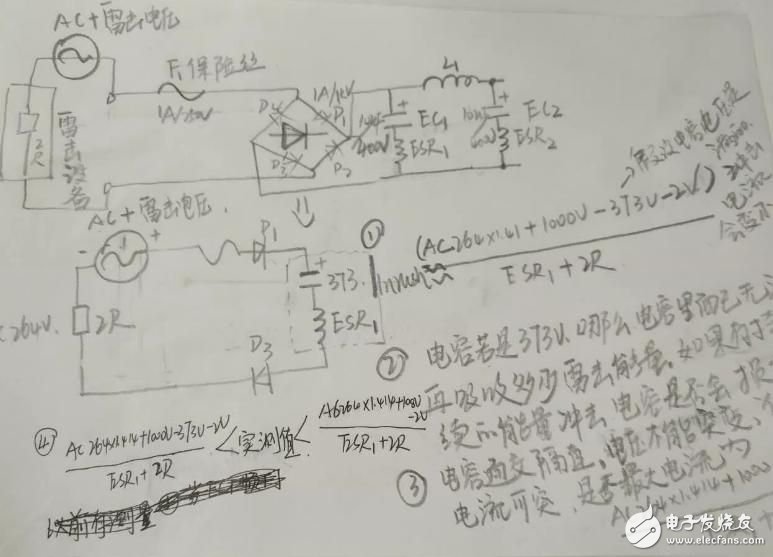 AC+雷击电压
F1保险丝
1A/250V
2R
雷击设备
D4
1A/1KV
D1
D3
D2
400V
EC1
ESR1
L1
400V
EC2
ESR2
AC+雷击电压.
2R
D1
373.
ESR1
D3
①
Inrush≈
(AC264×1.41+1000V-373V-2V)
ESR1+2R
② 电容若是373V.那么电容里面已无
再吸收多少雷击能量.如果
的能量冲击,电容是否会
③ 电容通交隔直,电压不能突变,
电流可突,是否最大电流为
AC264×1.414+1000
④ AC264×1.414+1000V-373V-2V
ESR1+2R
<实测值<
AC264×1.414+1000V
-2V
ESR1+2R
电子发烧友
www.elecfans.com